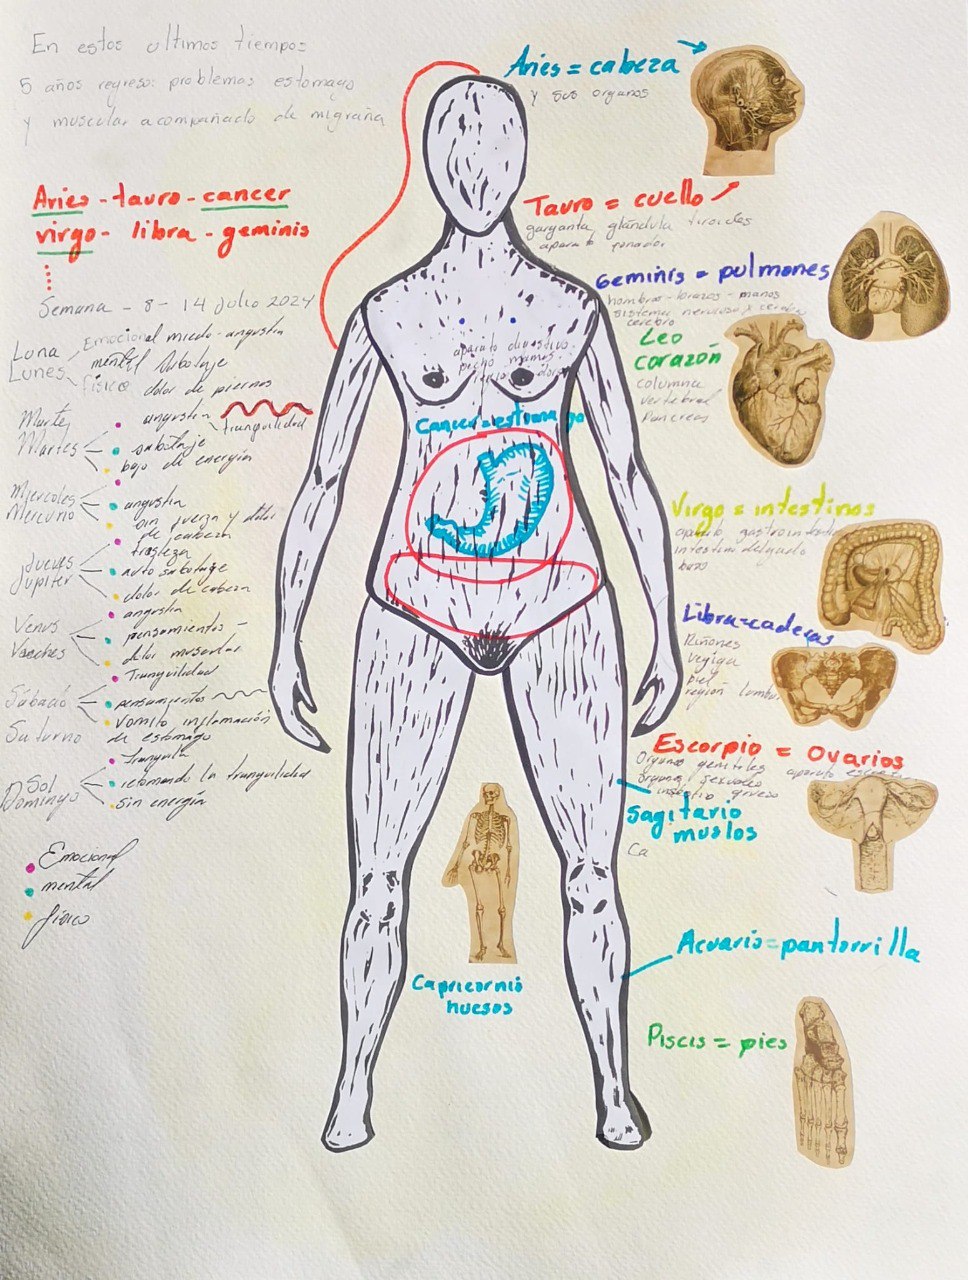 En estos ultimos tiempos
5 años regreso: problemas estomago
y muscular acompañado de migraña
Aries - tauro - cancer
virgo - libra - geminis
Semana - 8 - 14 Julio 2024
Luna Emocional miedo - angustia
Lunes mental
Físico dolor de piernas
Marte angustia
tranquilidad
Martes sabotaje
bajo de energía
Miercoles angustia
Mercurio sin fuerza y dolor
de cabeza
tristeza
Jueves
Jupiter auto sabotaje
dolor de cabeza
angustia
Venus pensamientos -
Viernes dolor muscular
Tranquilidad
Sábado pensamientos
Saturno Vomito inflamación
de estomago
tranquila
Sol retomando la tranquilidad
Domingo sin energía
Emocional
mental
físico
Aries = cabeza
y sus organos
Tauro = cuello
garganta, glándula tiroides
aparato fonador
Geminis = pulmones
hombros - brazos - manos
sistema nervioso
cerebro
Leo
corazón
columna
vertebral
Pancreas
aparato digestivo
pecho mamas
Cancer = estomago
Virgo = intestinos
intestino delgado
bazo
Libra = caderas
Riñones
Vegiga
piel
región lumbar
Escorpio = Ovarios
Organos genitales
organos sexuales
intestino grueso
Sagitario
muslos
Ca
Capricornio
huesos
Acuario = pantorrilla
Piscis = pies